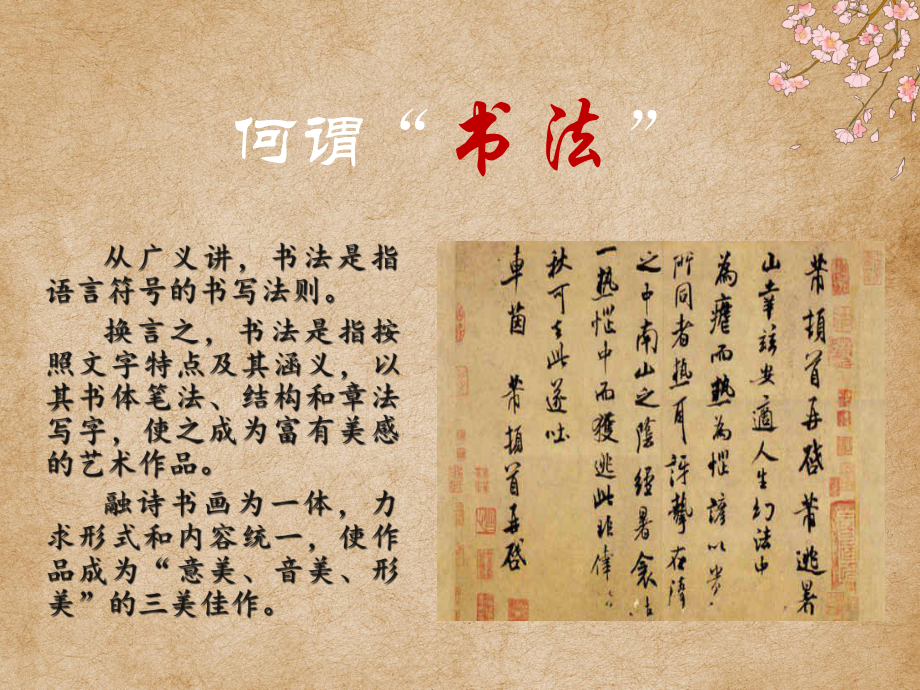 何谓“书法”
从广义讲，书法是指
语言符号的书写法则。
换言之，书法是指按
照文字特点及其涵义，以
其书体笔法、结构和章法
写字，使之成为富有美感
的艺术作品。
融诗书画为一体，力
求形式和内容统一，使作
品成为“意美、音美、形
美”的三美佳作。
芾頓首再啓芾逃暑
山幸茲安適人生幻法中
為瘧而熱為惱諺以貴
所同者熱耳訝挈在
之中南山之陰經暑衾
一熱惱中而獲逃此非偉
秋可去此遂吐
車茵 芾頓首再啓